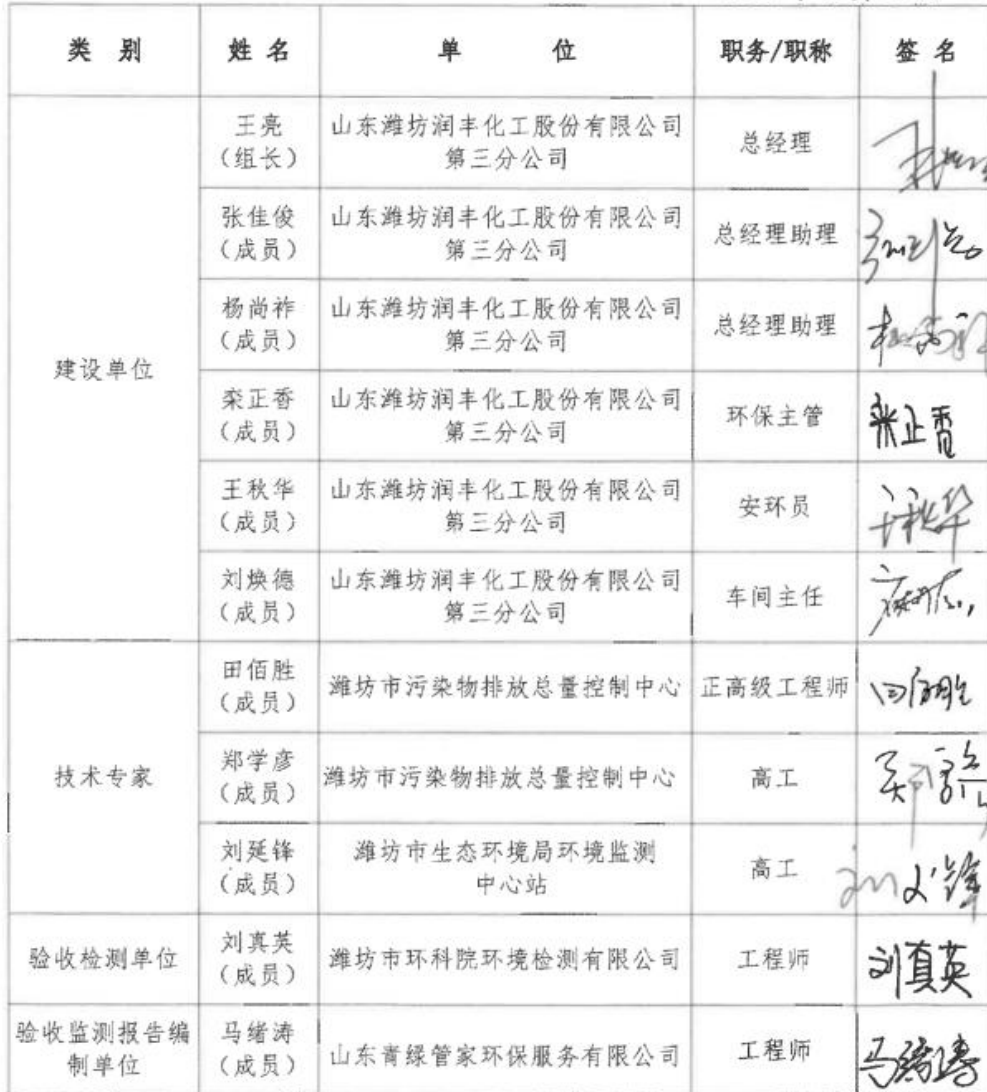 类 别 姓 名 单 位 职务/职称 签 名
建设单位
王亮
(组长)
山东潍坊润丰化工股份有限公司
第三分公司
总经理
张佳俊
(成员)
山东潍坊润丰化工股份有限公司
第三分公司
总经理助理
杨尚祚
(成员)
山东潍坊润丰化工股份有限公司
第三分公司
总经理助理
栾正香
(成员)
山东潍坊润丰化工股份有限公司
第三分公司
环保主管
王秋华
(成员)
山东潍坊润丰化工股份有限公司
第三分公司
安环员
刘焕德
(成员)
山东潍坊润丰化工股份有限公司
第三分公司
车间主任
技术专家
田佰胜
(成员)
潍坊市污染物排放总量控制中心
正高级工程师
郑学彦
(成员)
潍坊市污染物排放总量控制中心
高工
刘延锋
(成员)
潍坊市生态环境局环境监测
中心站
高工
验收检测单位
刘真英
(成员)
潍坊市环科院环境检测有限公司
工程师
刘真英
验收监测报告编
制单位
马绪涛
(成员)
山东青绿管家环保服务有限公司
工程师
马绪涛